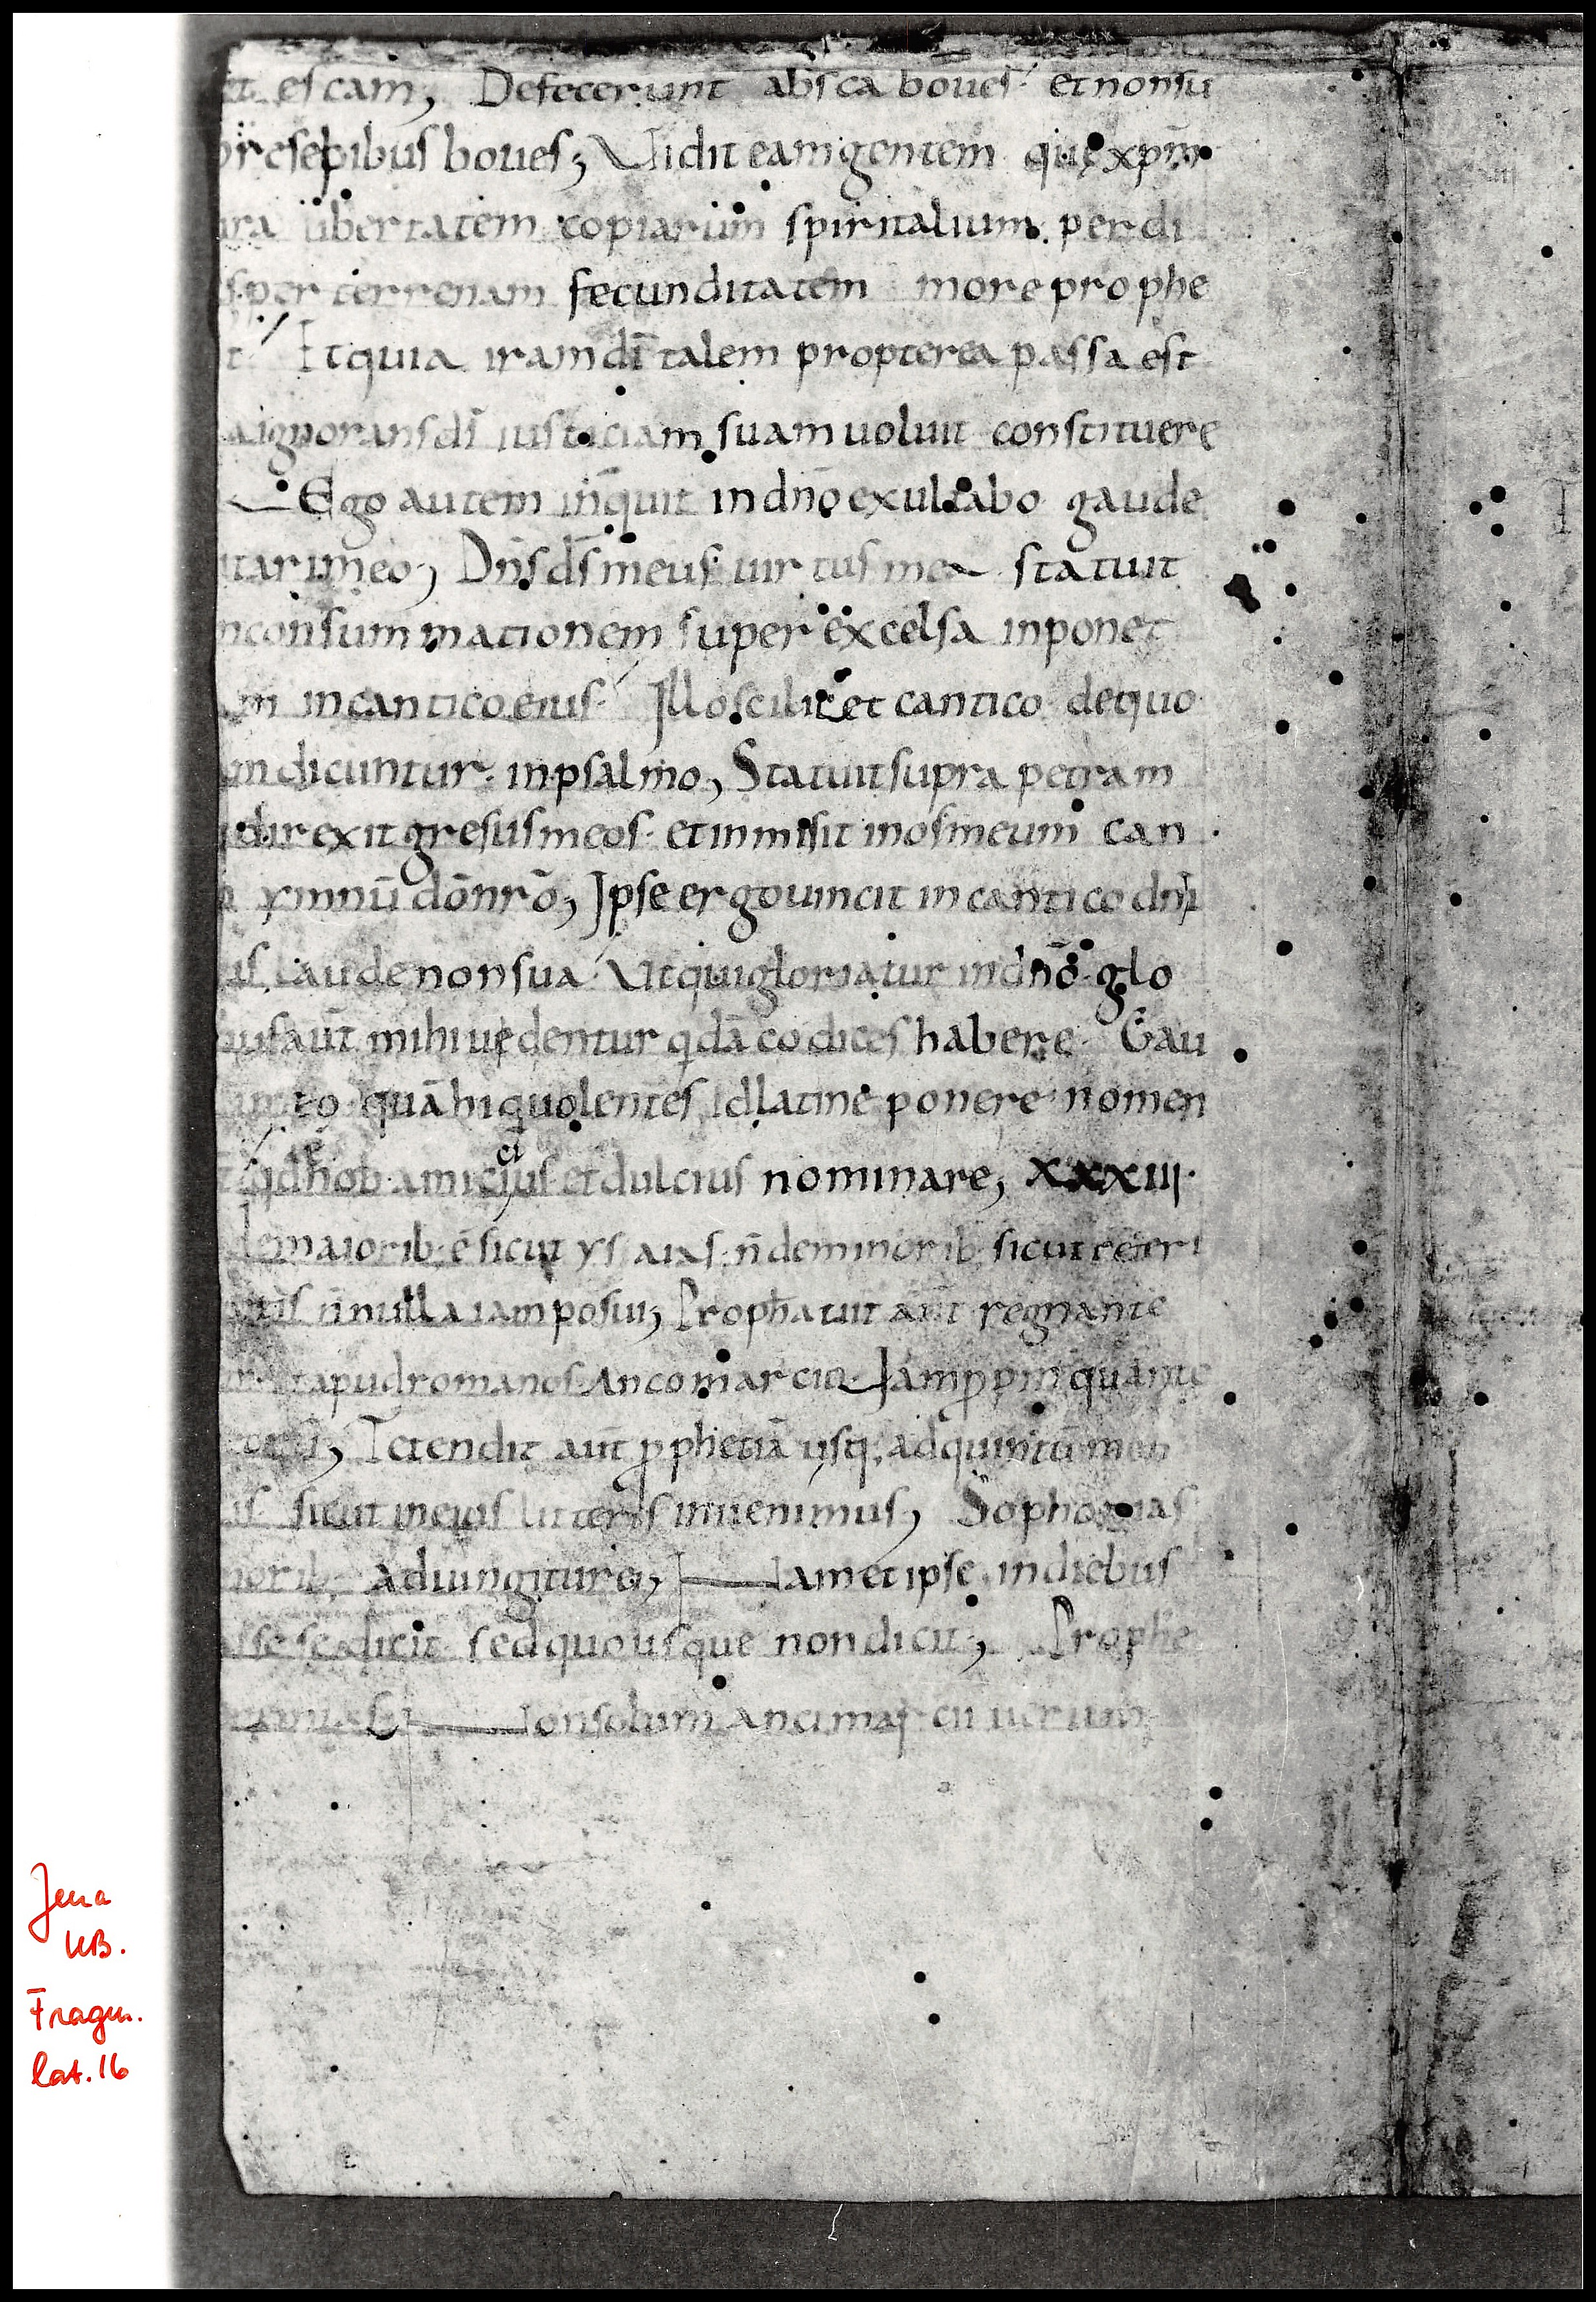 et escam, Defecerunt absca boues et nonsu
presepibus boues; Uidit eam gentem quę xpm̄
ura ubertatem copiarum spiritalium perdi
s per terrenam fecunditatem more prophe
t Et quia iram dī talem propterea passa est
a ignorans dī iusticiam suam uoluit constituere
Ego autem inquit in dn̄o exultabo gaude
utari meo, Dn̄s ds̄ meus uirtus mea statuit
n consummationem super excelsa inponet
am in cantico eius Illo scilicet cantico dequo
am dicuntur in psalmo, Statuit supra petram
direxit gresus meos et inmisit in os meum can
ymnū dō nr̄ō, Ipse ergo uincit in cantico dn̄i
is laude non sua Ut qui gloriatur in dn̄o glo
ius aūt mihi uidentur qdā codices habere Gau
quā hi qui uolentes id latine ponere nomen
t qd nob amicius et dulcius nominare, xxxiii
ci
de maiorib: ē sicut ysaias n̄ de minorib: sicut ceteri
n̄nulla iam posui, Prophatuit aūt regnante
apud romanos anco marcio Iam ꝓpinquante
Tetendit aūt ꝓphetiā usq; ad quintū men
is sicut in eius litteris inuenimus, Sophonias
norib: adiungitur ei, Iam et ipse in diebus
sse se dicit sed quousque non dicit, Prophe
onsolum anci marcii uerum
Jena
UB.
Fragm.
lat. 16